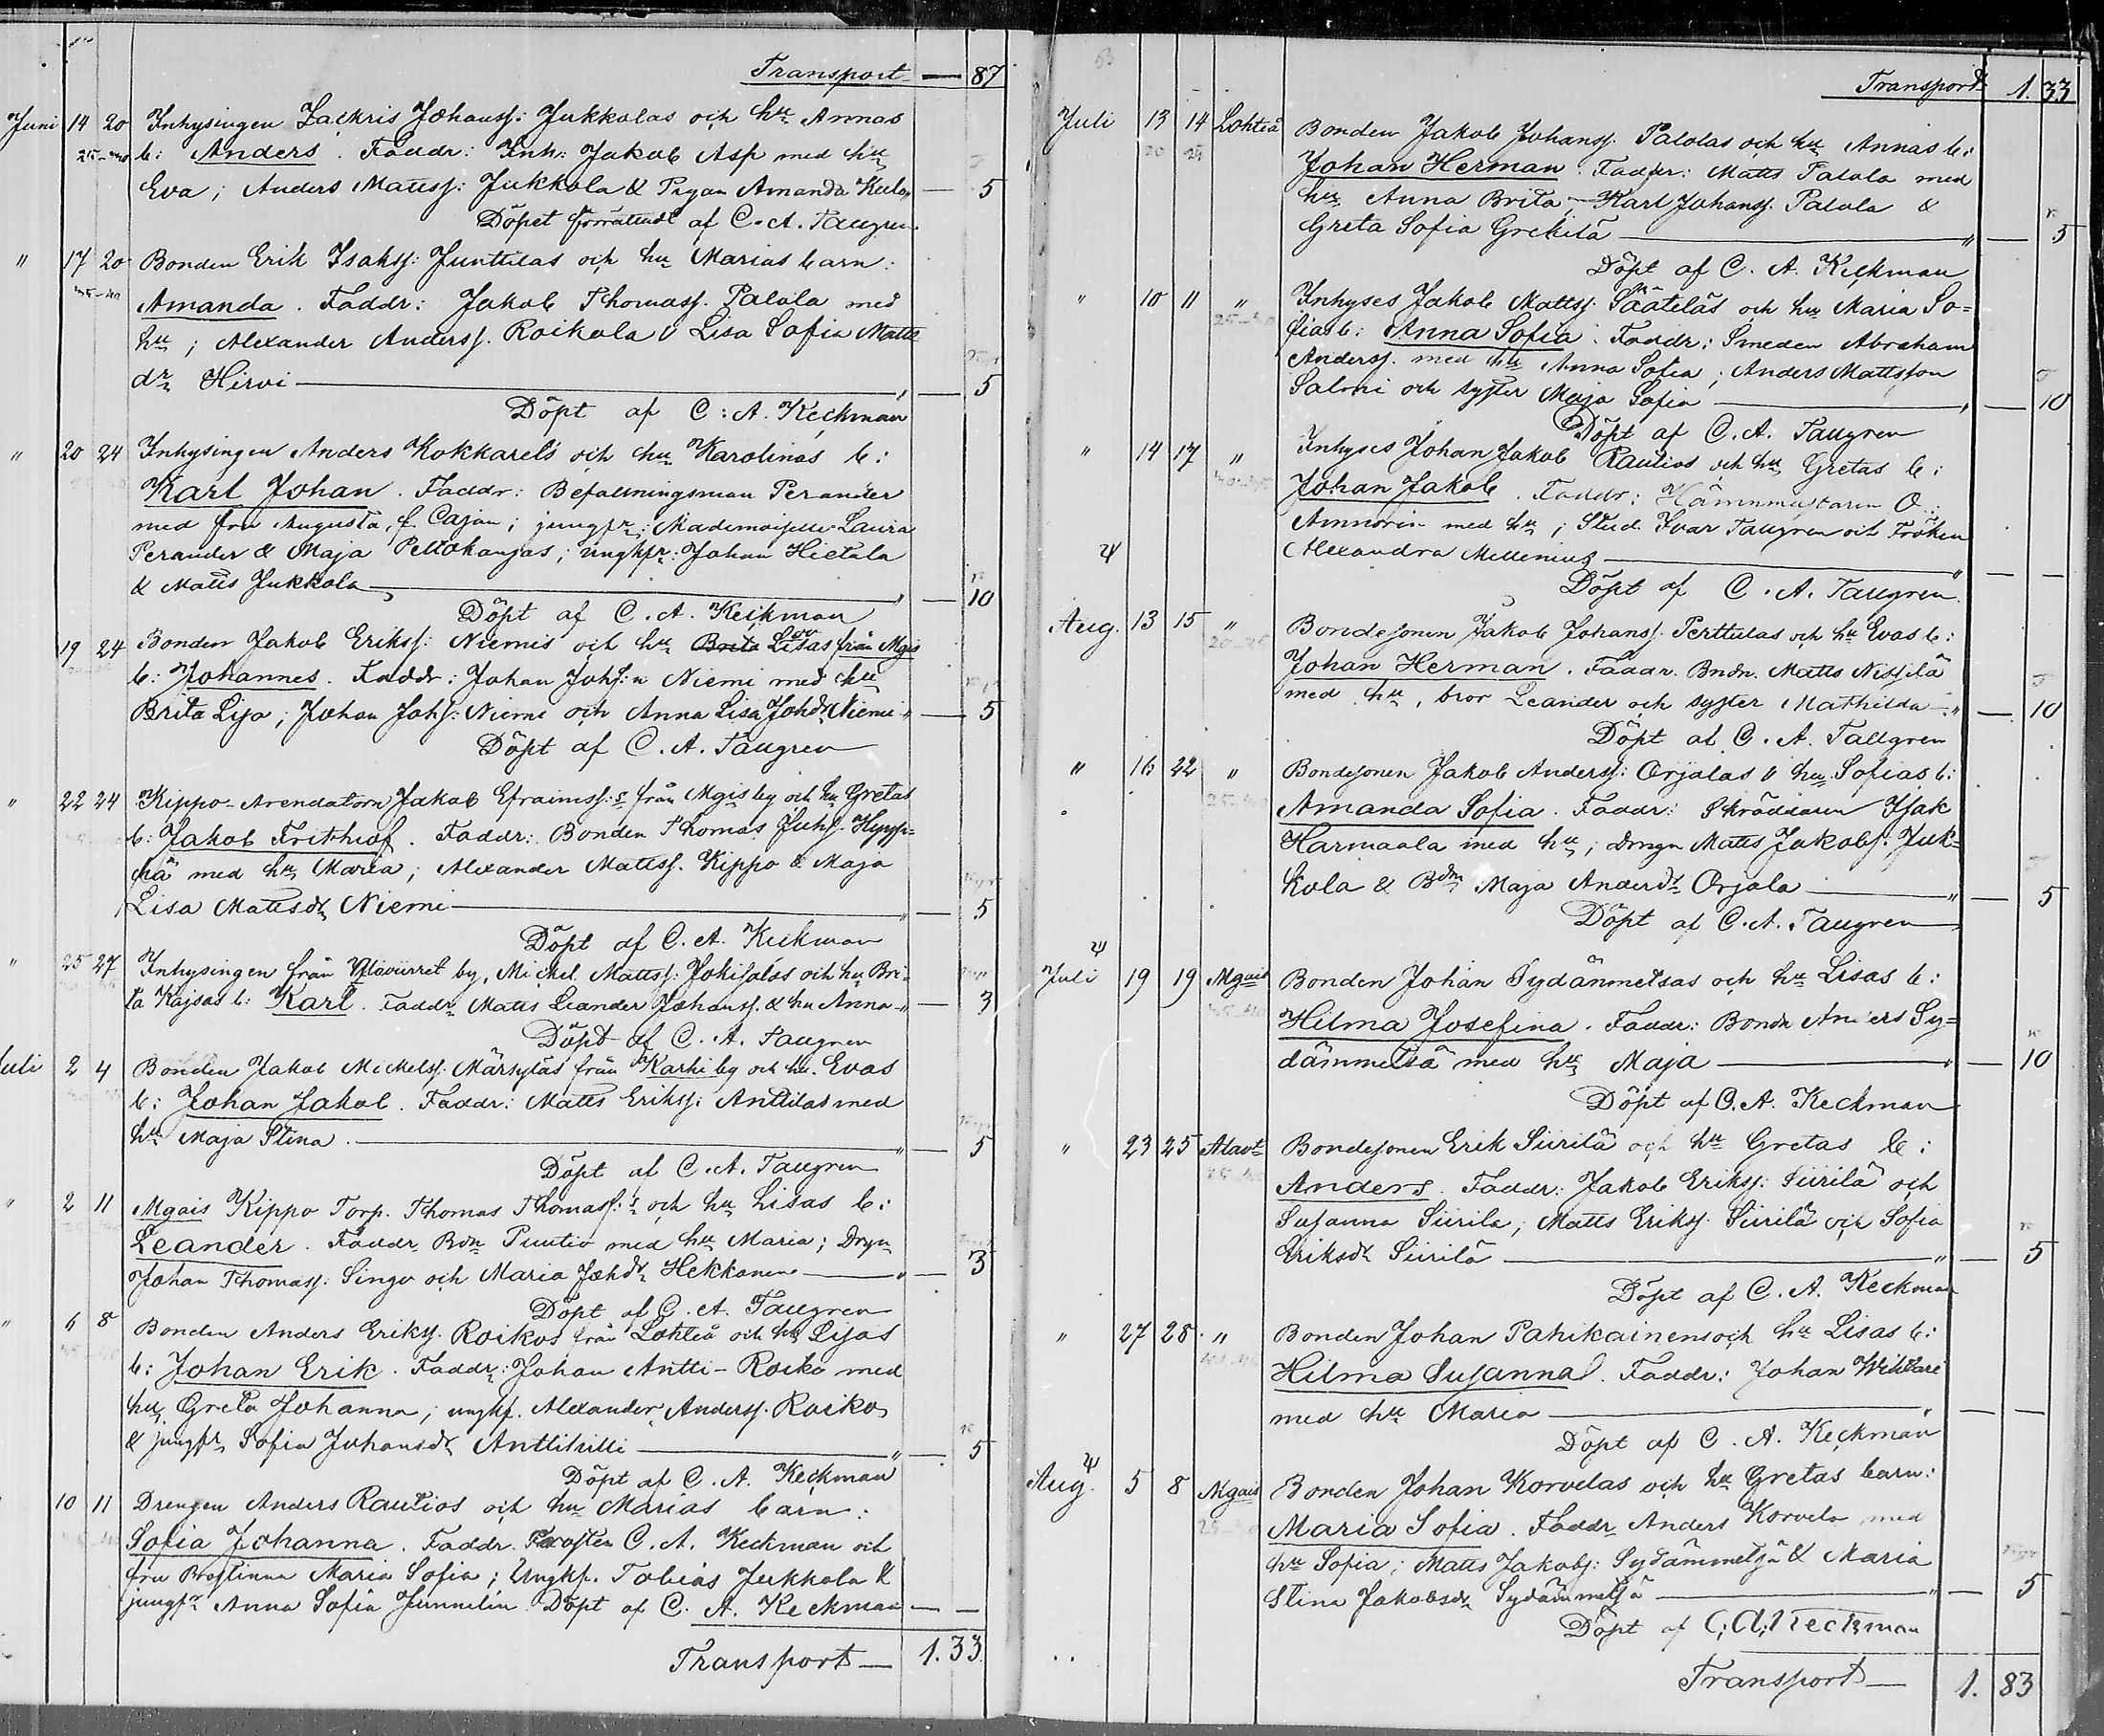 Transport — 87
Juni 14 20 Inhysingen Zachris Johanss: Jukkolas och hu Annas
b: Anders. Faddr: Inh: Jakob Asp med hu
Eva; Anders Matss: Jukkola & Pigan Amanda — 5
Döpet förrättadt af C. A. Taugren
" 17 20 Bonden Erik Isakss: Junttilas och hu Marias barn:
Amanda. Faddr: Jakob Thomass. Palola med
hu; Alexander Anderss. Roikola & Lisa Sofia Matts
dr Hirvi — 5
Döpt af C. A. Keckman
" 20 24 Inhysingen Anders Kokkarels och hu Karolinas b:
Karl Johan. Faddr: Befallningsman Perander
med fru Augusta, f. Cajan; jungfr: Mademoiselle Laura
Perander & Maja Peltokangas; ungkfr: Johan Hietala
& Matts Jukkola — 10
Döpt af C. A. Keckman
19 24 Bonden Jakob Erikss: Niemis och hu Brita Lisas från Mgis
b: Johannes. Faddr: Johan Johs:n Niemi med hu
Brita Lisa; Johan Johs: Niemi och Anna Lisa Johdr Niemi " — 5
Döpt af C. A. Taugren
" 22 24 Kippo-Arendatorn Jakob Efraimss:s från Mgis by och hu Gretas
b: Jakob Frithiof. Faddr: Bonden Thomas Juhs.
med hu Maria; Alexander Mattss. Kippo & Maja
Lisa Mattsdr Niemi — 5
Döpt af C. A. Keckman
" 25 27 Inhysingen från by, Mickel Mattss: Jokisalos och hu Bri-
ta Kajsas b: Karl. Faddr Matts Leander Johanss. & hu Anna " — 3
Döpt af C. A. Taugren
Juli 2 4 Bonden Jakob Mickelss. Märsyläs från Karhi by och hu. Evas
b: Johan Jakob. Faddr: Matts Erikss: Anttilas med
hu Maja Stina. — 5
Döpt af C. A. Taugren
" 2 11 Mgais Kippo Torp. Thomas Thomass:s och hu Lisas b:
Leander. Faddr Bdn Puutio med hu Maria; Drgn
Johan Thomass. Singo och Maria Johdr Hekkanen — 3
Döpt af C. A. Taugren
" 6 8 Bonden Anders Erikss. Roikos från Lohteå och hu Lisas
b: Johan Erik. Faddr: Johan Antti-Roiko med
hu Greta Johanna; ungkf. Alexander Anderss. Roiko
& jungfr Sofia Johansdr Anttihilli — 5
Döpt af C. A. Keckman
10 11 Drengen Anders Rautios och hu Marias barn:
Sofia Johanna. Faddr. Prosten C. A. Keckman och
fru Prostinna Maria Sofia; Ungkf. Tobias Jukkola &
jungfr Anna Sofia Junnelin Döpt af C. A. Keckman — —
Transport — 1.33.
Transport 1. 33
Juli 13 14 Lohteå Bonden Jakob Johanss. Palolas och hu Annas b:
Johan Herman. Faddr: Matts Palola med
hu Anna Brita, Karl Johanss. Palola &
Greta Sofia Grekilä — 5
Döpt af C. A. Keckman
" 10 11 " Inhyses Jakob Mattss. Sääteläs och hu Maria So=
fias b: Anna Sofia. Faddr: Smeden Abraham
Anderss. med hu Anna Sofia; Anders Mattsson
Salmi och syster Maja Sofia — 10
Döpt af C. A. Taugren
" 14 17 " Inhyses Johan Jakob Rautios och hu Gretas b:
Johan Jakob. Faddr: O.
med hu; Stud. Ivar Taugren och Fröken
Alexandra Mellenius — —
Döpt af C. A. Taugren
Aug. 13 15 " Bondesonen Jakob Johanss. Perttulas och hu Evas b:
Johan Herman. Faddr. Bndn. Matts Nissilä
med hu, bror Leander och syster Mathilda " — 10
Döpt af C. A. Tallgren
" 16 22 " Bondesonen Jakob Anderss: Orjalas & hu Sofias b:
Amanda Sofia. Faddr: Skräddaren Isak
Harmaala med hu; Drngn Matts Jakobs: Juk=
kola & Bdn Maja Andersdr Orjala — 5
Döpt af C. A. Taugren
Juli 19 19 Mgais Bonden Johan Sydänmetsas och hu Lisas b:
Hilma Josefina. Faddr: Bondn Anders Sy=
dämmetsä med hu Maja — 10
Döpt af C. A. Keckman
" 23 25 Alavt Bondesonen Erik Siirilä och hu Gretas b:
Anders. Faddr: Jakob Erikss: Siirilä och
Susanna Siirila; Matts Erikss. Siirilä och Sofia
Eriksdr Siirilä — 5
Döpt af C. A. Keckman
" 27 28 " Bonden Johan Pahikainens och hu Lisas b:
Hilma Susanna. Faddr: Johan
med hu Maria — —
Döpt af C. A. Keckman
Aug. 5 8 Mgais Bonden Johan Korvelas och hu Gretas barn:
Maria Sofia. Faddr Anders Korvela med
hu Sofia; Matts Jakobs: Sydämmetsä & Maria
Stina Jakobsdr Sydämmetsä — 5
Döpt af C; A; Keckman
Transport — 1. 83